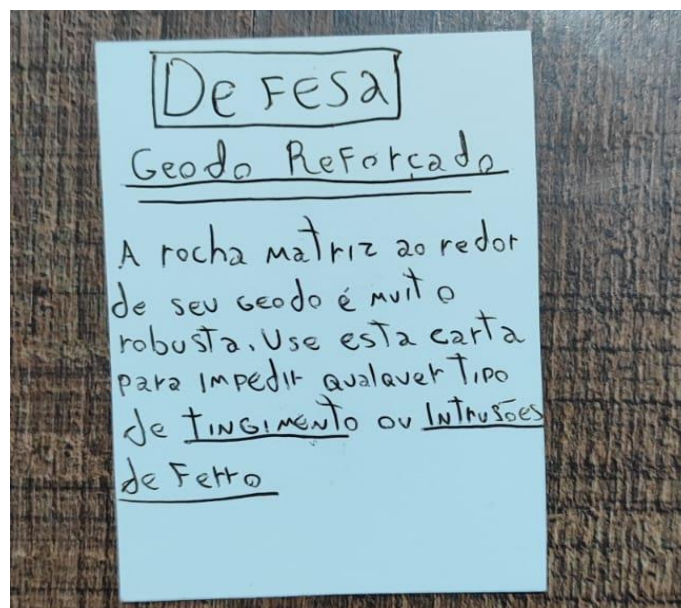 Defesa
Geodo Reforçado
A rocha matriz ao redor
de seu Geodo é muito
robusta. Use esta carta
para impedir qualquer tipo
de tingimento ou Intrusões
de Ferro